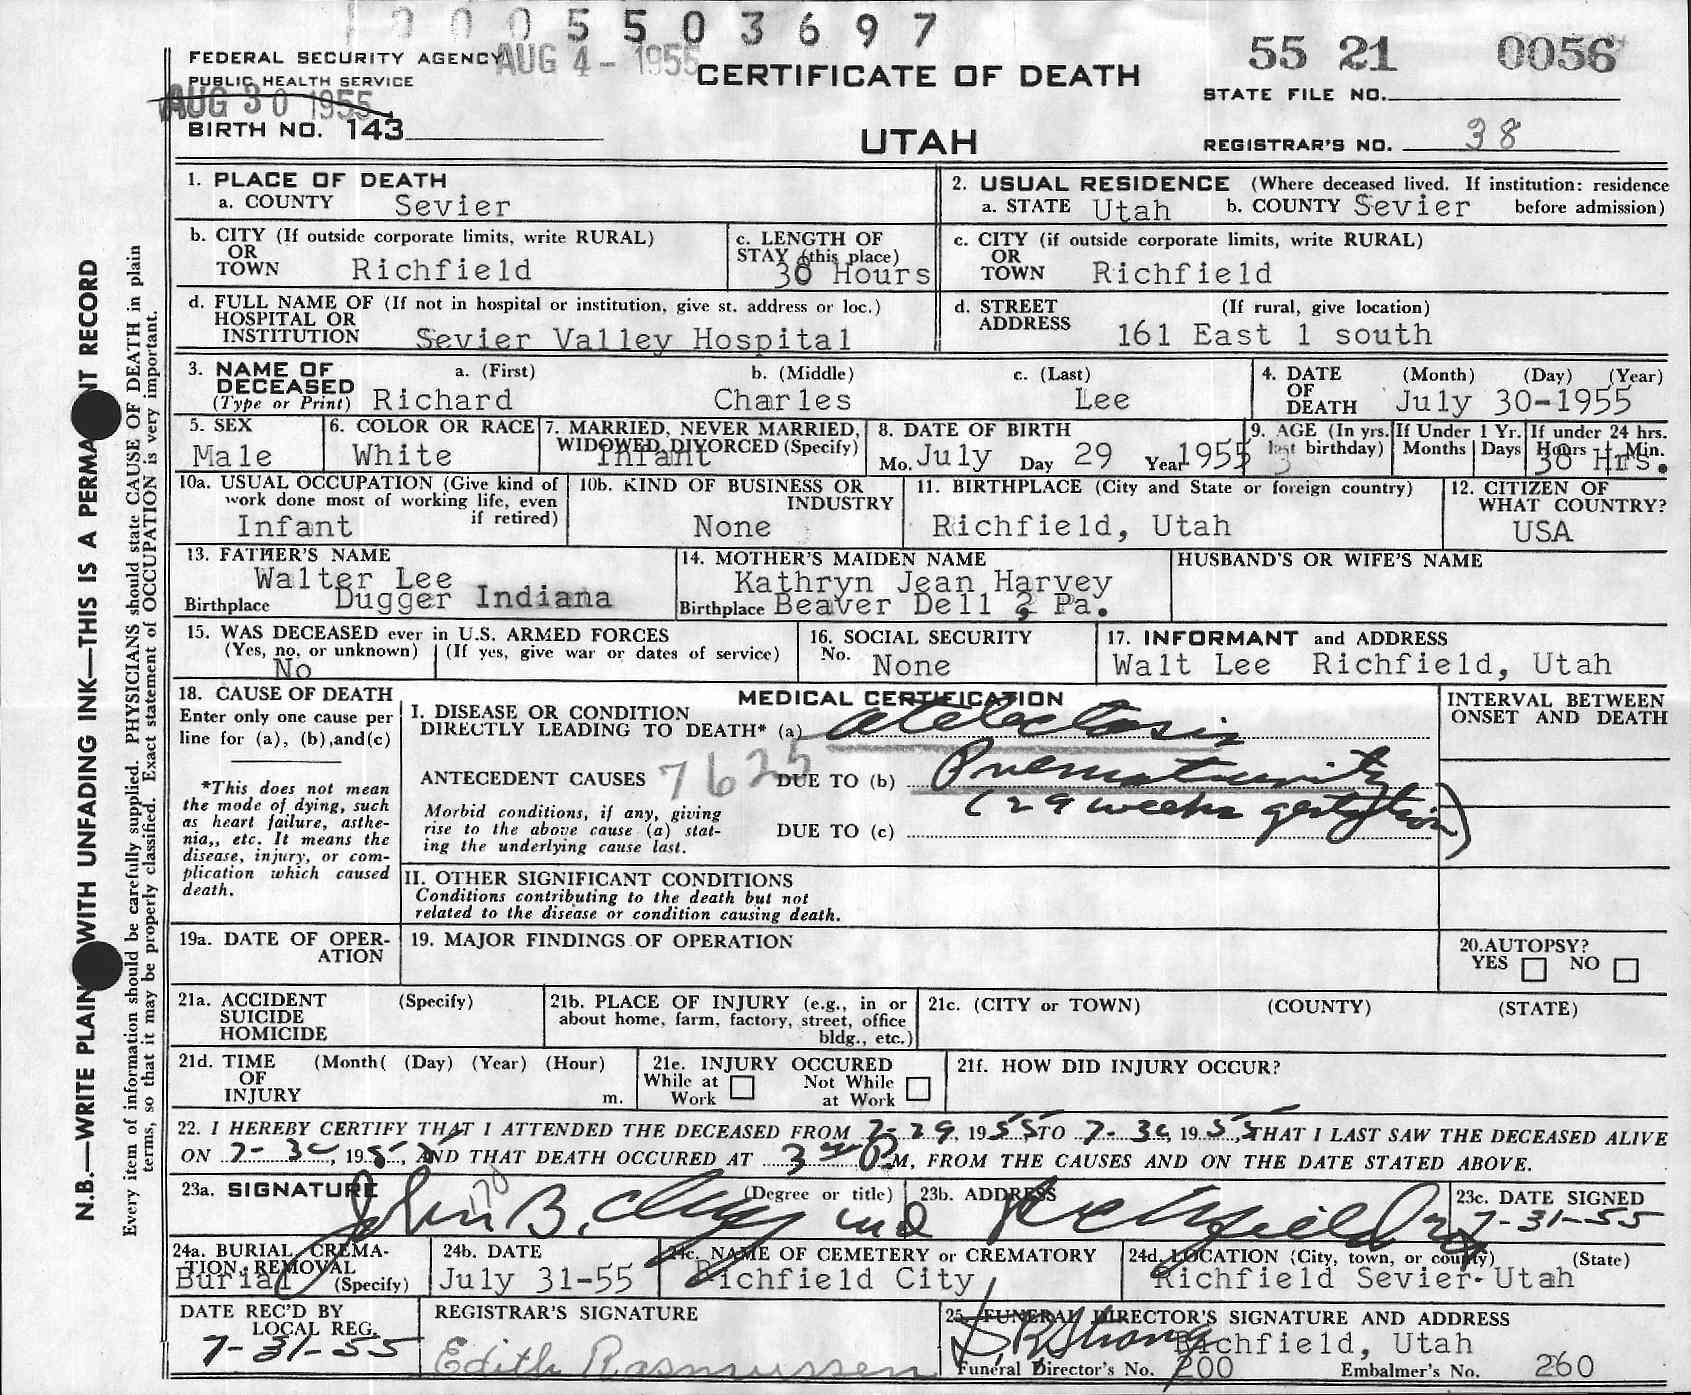 5503697
FEDERAL SECURITY AGENCY AUG 4 - 1955
PUBLIC HEALTH SERVICE
AUG 30 1955
BIRTH NO. 143
CERTIFICATE OF DEATH
UTAH
55 21 0056
STATE FILE NO.
REGISTRAR'S NO. 38
1. PLACE OF DEATH
a. COUNTY Sevier
2. USUAL RESIDENCE (Where deceased lived. If institution: residence
a. STATE Utah b. COUNTY Sevier before admission)
b. CITY (If outside corporate limits, write RURAL)
OR
TOWN Richfield
c. LENGTH OF
STAY (this place)
Hours
c. CITY (if outside corporate limits, write RURAL)
OR
TOWN Richfield
d. FULL NAME OF (If not in hospital or institution, give st. address or loc.)
HOSPITAL OR
INSTITUTION Sevier Valley Hospital
d. STREET (If rural, give location)
ADDRESS 161 East 1 south
3. NAME OF a. (First) b. (Middle) c. (Last)
DECEASED
(Type or Print) Richard Charles Lee
4. DATE (Month) (Day) (Year)
OF
DEATH July 30-1955
5. SEX
Male
6. COLOR OR RACE
White
7. MARRIED, NEVER MARRIED,
WIDOWED, DIVORCED (Specify)
Infant
8. DATE OF BIRTH
Mo. July Day 29 Year 1955
9. AGE (In yrs.
last birthday)
If Under 1 Yr.
Months Days
If under 24 hrs.
Hours Min.
Hrs.
10a. USUAL OCCUPATION (Give kind of
work done most of working life, even
if retired)
Infant
10b. KIND OF BUSINESS OR
INDUSTRY
None
11. BIRTHPLACE (City and State or foreign country)
Richfield, Utah
12. CITIZEN OF
WHAT COUNTRY?
USA
13. FATHER'S NAME
Walter Lee
Birthplace Dugger Indiana
14. MOTHER'S MAIDEN NAME
Kathryn Jean Harvey
Birthplace Beaver Dell ? Pa.
HUSBAND'S OR WIFE'S NAME
15. WAS DECEASED ever in U.S. ARMED FORCES
(Yes, no, or unknown) (If yes, give war or dates of service)
No
16. SOCIAL SECURITY
No. None
17. INFORMANT and ADDRESS
Walt Lee Richfield, Utah
18. CAUSE OF DEATH
Enter only one cause per
line for (a), (b), and (c)
*This does not mean
the mode of dying, such
as heart failure, asthe-
nia,, etc. It means the
disease, injury, or com-
plication which caused
death.
MEDICAL CERTIFICATION
I. DISEASE OR CONDITION
DIRECTLY LEADING TO DEATH* (a) atelectasis
ANTECEDENT CAUSES 7625 DUE TO (b) Prematurity
(29 weeks gestation)
Morbid conditions, if any, giving
rise to the above cause (a) stat-
ing the underlying cause last.
DUE TO (c)
INTERVAL BETWEEN
ONSET AND DEATH
II. OTHER SIGNIFICANT CONDITIONS
Conditions contributing to the death but not
related to the disease or condition causing death.
19a. DATE OF OPER-
ATION
19. MAJOR FINDINGS OF OPERATION
20. AUTOPSY?
YES NO
21a. ACCIDENT (Specify)
SUICIDE
HOMICIDE
21b. PLACE OF INJURY (e.g., in or
about home, farm, factory, street, office
bldg., etc.)
21c. (CITY or TOWN) (COUNTY) (STATE)
21d. TIME (Month( (Day) (Year) (Hour)
OF
INJURY m.
21e. INJURY OCCURED
While at Work Not While at Work
21f. HOW DID INJURY OCCUR?
22. I HEREBY CERTIFY THAT I ATTENDED THE DECEASED FROM 7-29, 1955 TO 7-30, 1955, THAT I LAST SAW THE DECEASED ALIVE
ON 7-30, 1955, AND THAT DEATH OCCURED AT 3 P M, FROM THE CAUSES AND ON THE DATE STATED ABOVE.
23a. SIGNATURE (Degree or title)
John B. md
23b. ADDRESS
Richfield
23c. DATE SIGNED
7-31-55
24a. BURIAL, CREMA-
TION, REMOVAL
(Specify)
Burial
24b. DATE
July 31-55
24c. NAME OF CEMETERY or CREMATORY
Richfield City
24d. LOCATION (City, town, or county) (State)
Richfield Sevier-Utah
DATE REC'D BY
LOCAL REG.
7-31-55
REGISTRAR'S SIGNATURE
Edith Rasmussen
25. FUNERAL DIRECTOR'S SIGNATURE AND ADDRESS
Richfield, Utah
Funeral Director's No. 200 Embalmer's No. 260
N.B.—WRITE PLAIN WITH UNFADING INK—THIS IS A PERMA NT RECORD
Every item of information should be carefully supplied. PHYSICIANS should state CAUSE OF DEATH in plain
terms, so that it may be properly classified. Exact statement of OCCUPATION is very important.